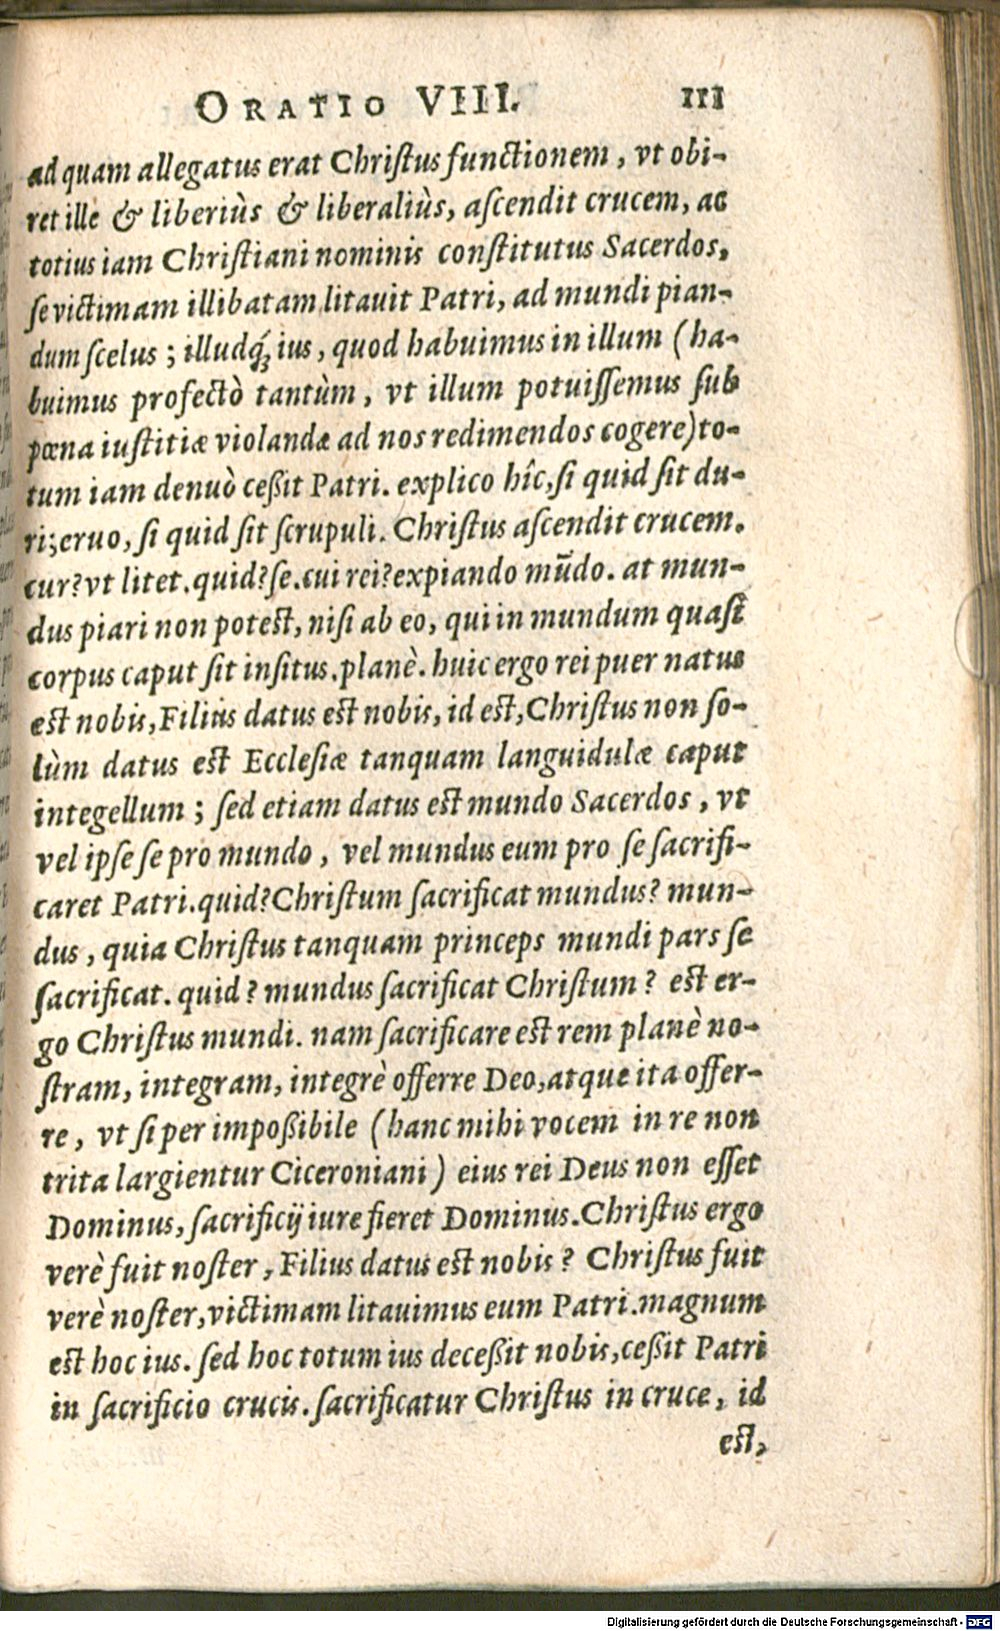 ORATIO VIII. 111
ad quam allegatus erat Chriſtus functionem, vt obi-
ret ille & liberiùs & liberaliùs, aſcendit crucem, ac
totius iam Chriſtiani nominis conſtitutus Sacerdos,
ſe victimam illibatam litauit Patri, ad mundi pian-
dum ſcelus; illudq́; ius, quod habuimus in illum (ha-
buimus profectò tantùm, vt illum potuiſſemus ſub
pœna iuſtitiæ violandæ ad nos redimendos cogere) to-
tum iam denuò ceßit Patri. explico hîc, ſi quid ſit du-
ri; eruo, ſi quid ſit ſcrupuli. Chriſtus aſcendit crucem.
cur? vt litet. quid? ſe. cui rei? expiando mũdo. at mun-
dus piari non poteſt, niſi ab eo, qui in mundum quaſi
corpus caput ſit inſitus. planè. huic ergo rei puer natus
eſt nobis, Filius datus eſt nobis, id eſt, Chriſtus non ſo-
lùm datus eſt Eccleſiæ tanquam languidulæ caput
integellum; ſed etiam datus eſt mundo Sacerdos, vt
vel ipſe ſe pro mundo, vel mundus eum pro ſe ſacrifi-
caret Patri. quid? Chriſtum ſacrificat mundus? mun-
dus, quia Chriſtus tanquam princeps mundi pars ſe
ſacrificat. quid? mundus ſacrificat Chriſtum? eſt er-
go Chriſtus mundi. nam ſacrificare eſt rem planè no-
ſtram, integram, integrè offerre Deo, atque ita offer-
re, vt ſi per impoßibile (hanc mihi vocem in re non
trita largientur Ciceroniani) eius rei Deus non eſſet
Dominus, ſacrificij iure fieret Dominus. Chriſtus ergo
verè fuit noſter, Filius datus eſt nobis? Chriſtus fuit
verè noſter, victimam litauimus eum Patri. magnum
eſt hoc ius. ſed hoc totum ius deceßit nobis, ceßit Patri
in ſacrificio crucis. ſacrificatur Chriſtus in cruce, id
eſt,
Digitalisierung gefördert durch die Deutsche Forschungsgemeinschaft - DFG